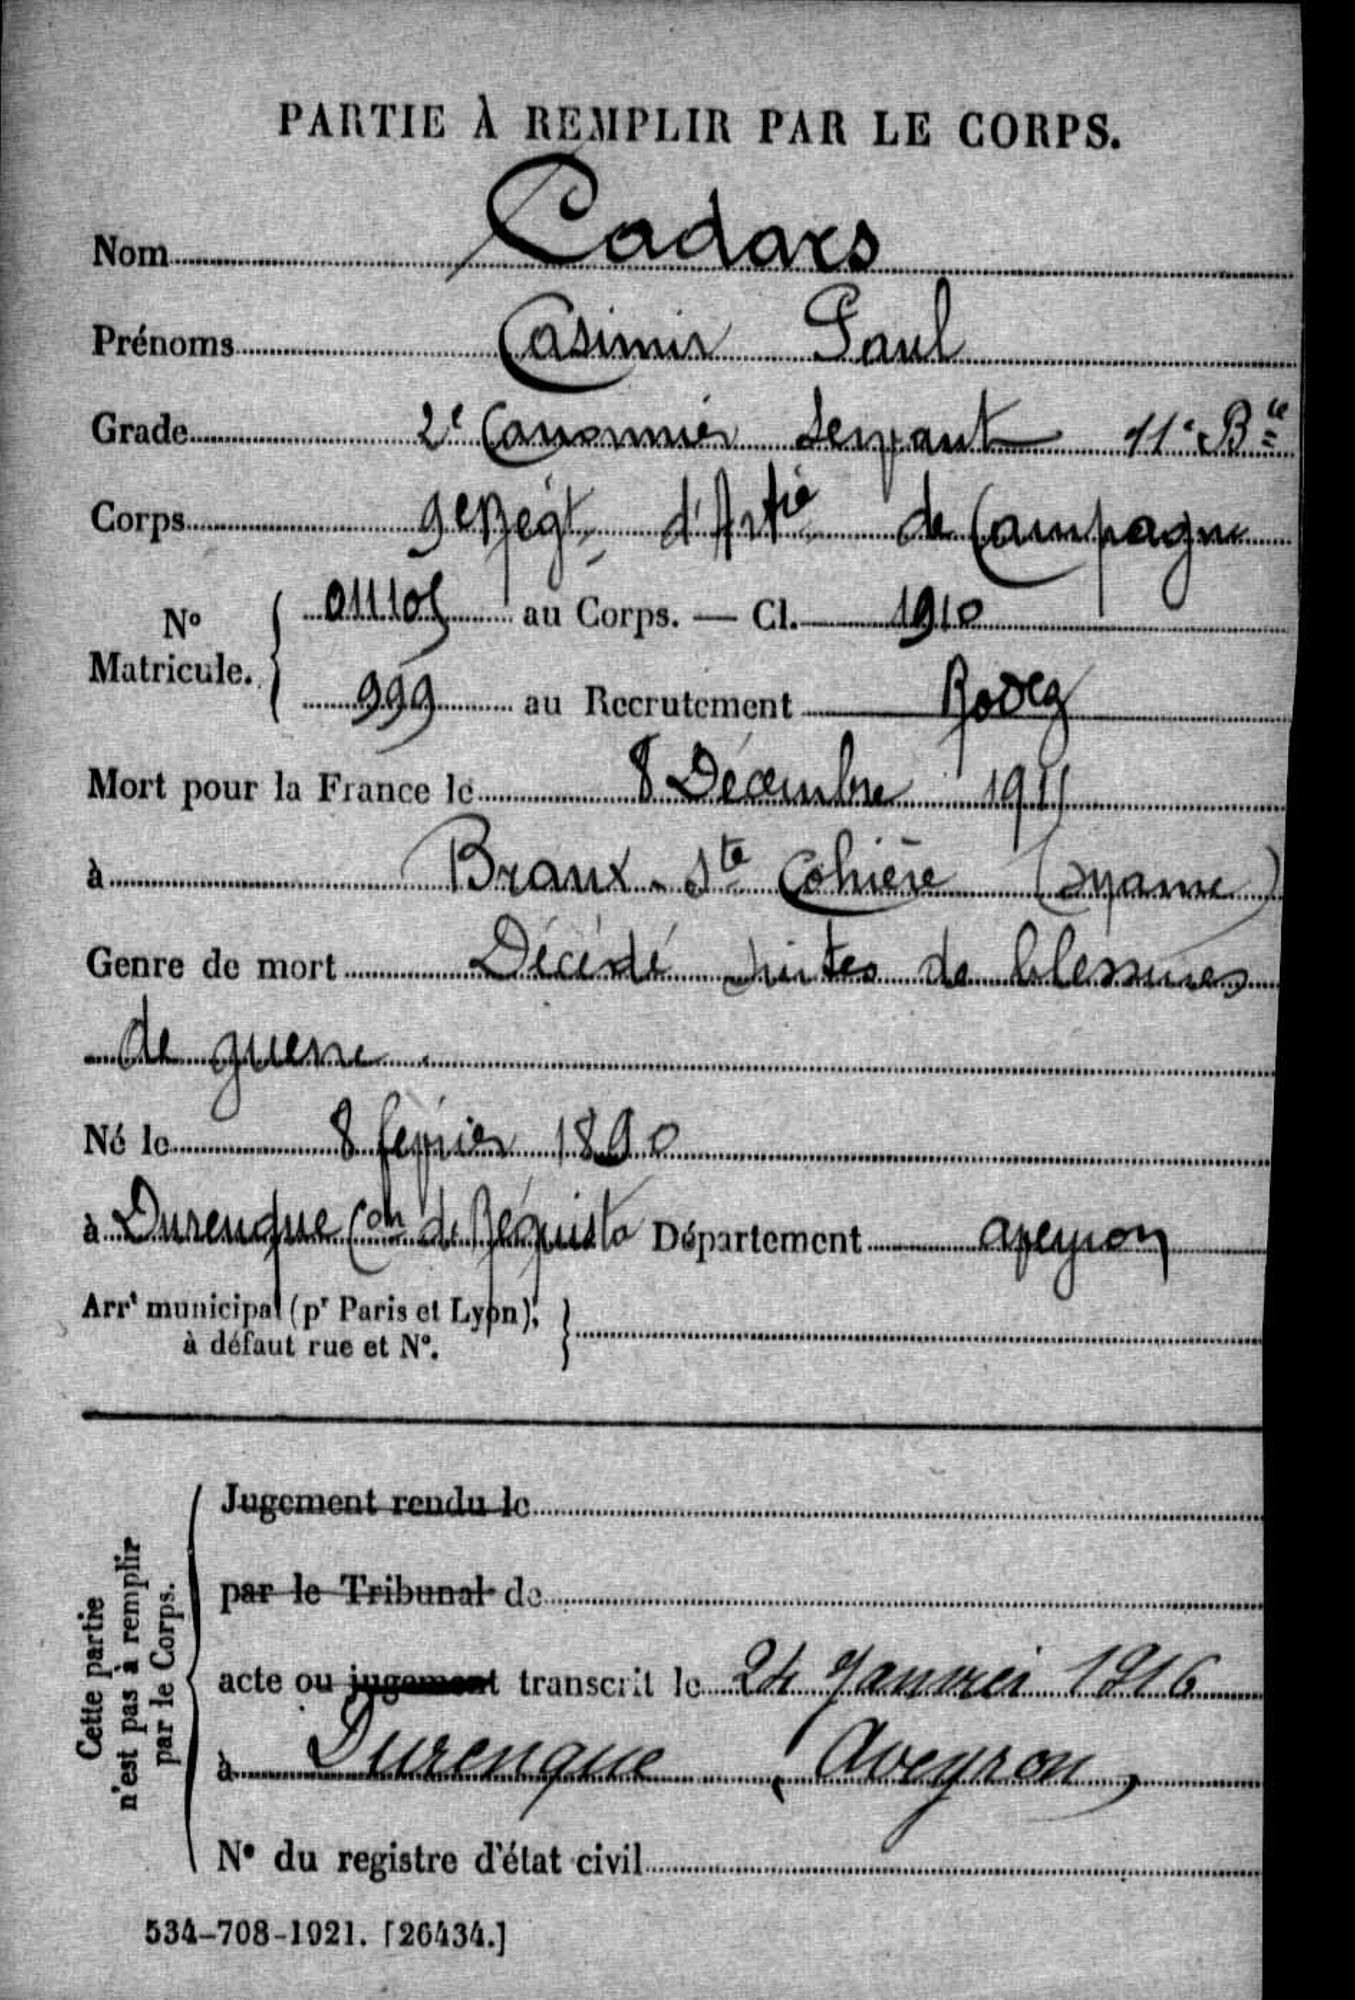 PARTIE À REMPLIR PAR LE CORPS.
Nom Cadars
Prénoms Casimir Paul
Grade 2e Canonnier Servant 11e Bie
Corps 9e Régt d'Artie de Campagne
No Matricule. 011105 au Corps. — Cl. 1910
999 au Recrutement Rodez
Mort pour la France le 8 Décembre 1915
à Braux-Ste Cohière (Marne)
Genre de mort Décédé suites de blessures
de guerre
Né le 8 février 1890
à Durenque Con de Réquista Département Aveyron
Arrt municipal (pr Paris et Lyon),
à défaut rue et No.
Cette partie
n'est pas à remplir
par le Corps.
Jugement rendu le
par le Tribunal de
acte ou jugement transcrit le 24 Janvier 1916
à Durenque (Aveyron)
No du registre d'état civil
534-708-1921. [26434.]